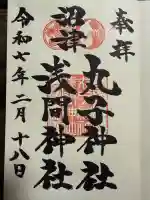 奉拝
丸子神社
沼津
浅間神社
令和七年二月十八日